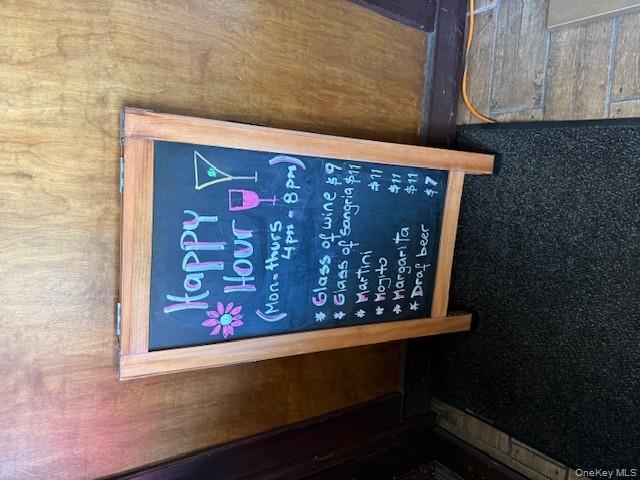 Happy
Hour
(Mon-thurs
4pm - 8pm)
* Glass of wine $9
* Glass of Sangria $11
* Martini $11
* Mojito $11
* Margarita $11
* Draf beer $7
OneKey MLS